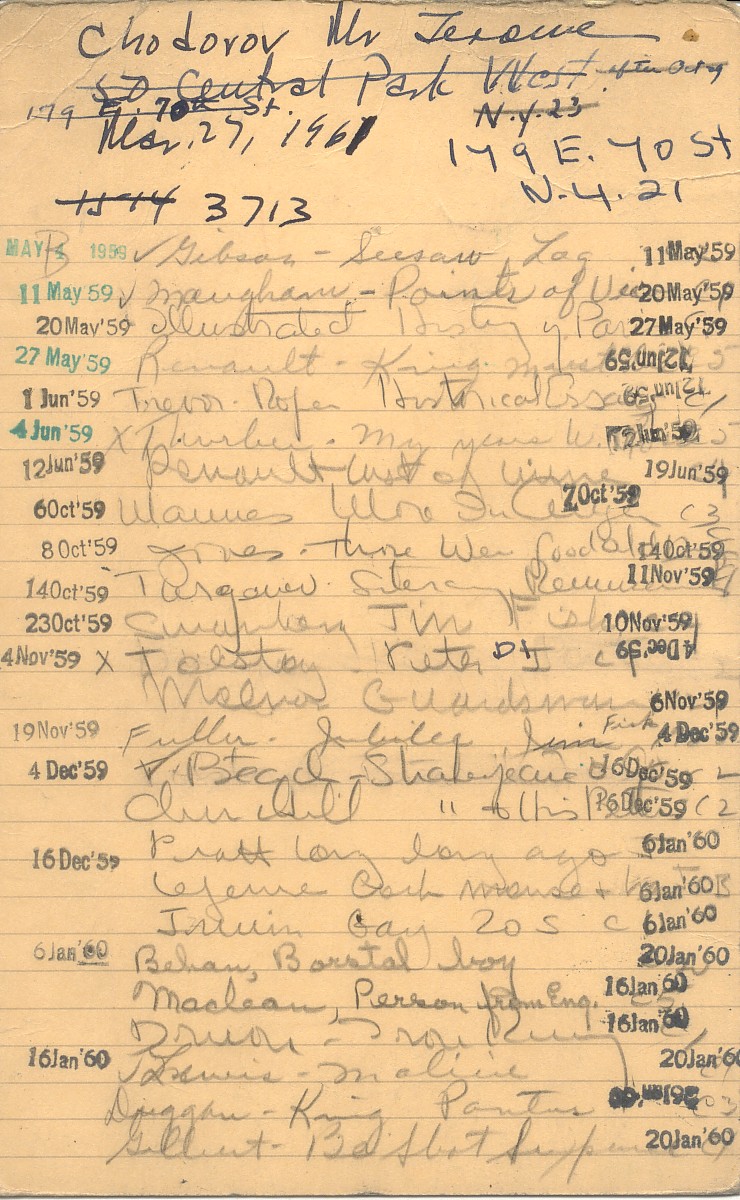 Chodorov Mr Jerome
50 Central Park West
179 E. 70th St. N.Y. 23
Mar. 27, 1961 179 E. 70 St
N.Y. 21
1514 3713
MAY 4 1959 B ✓ Gibson - Seesaw Log 11 May '59
11 May '59 ✓ Maugham - Points of View 20 May '59
20 May '59 Illustrated History of 27 May '59
27 May '59 Renault - King must 12 Jun '59
1 Jun '59 Trevor-Roper Historical Essays 12 Jun '59
4 Jun '59 X Thurber - My years W. 12 Jun '59
12 Jun '59 Renault - Last of Wine 19 Jun '59
6 Oct '59 Mannes More In Anger C3 7 Oct '59
8 Oct '59 Jones - Those Were Good 14 Oct '59
14 Oct '59 Turgenev - Literary 11 Nov '59
23 Oct '59 Swanberg Jim Fisk 10 Nov '59
4 Nov '59 X Tolstoy Peter I 4 Dec '59
Guardsman 6 Nov '59
19 Nov '59 Fuller - Jubilee Jim Fisk 4 Dec '59
4 Dec '59 ✓ Beach - Shakespeare 16 Dec '59
Churchill " 16 Dec '59 C2
16 Dec '59 Pratt Long long ago 6 Jan '60
6 Jan '60
Irwin Gay 20s C 6 Jan '60
6 Jan '60 Behan, Borstal boy 20 Jan '60
Maclean, Person from Eng. 16 Jan '60
Druon - 16 Jan '60
16 Jan '60 ✓ Lewis - 20 Jan '60
Duggan - King
Gilbert - 20 Jan '60